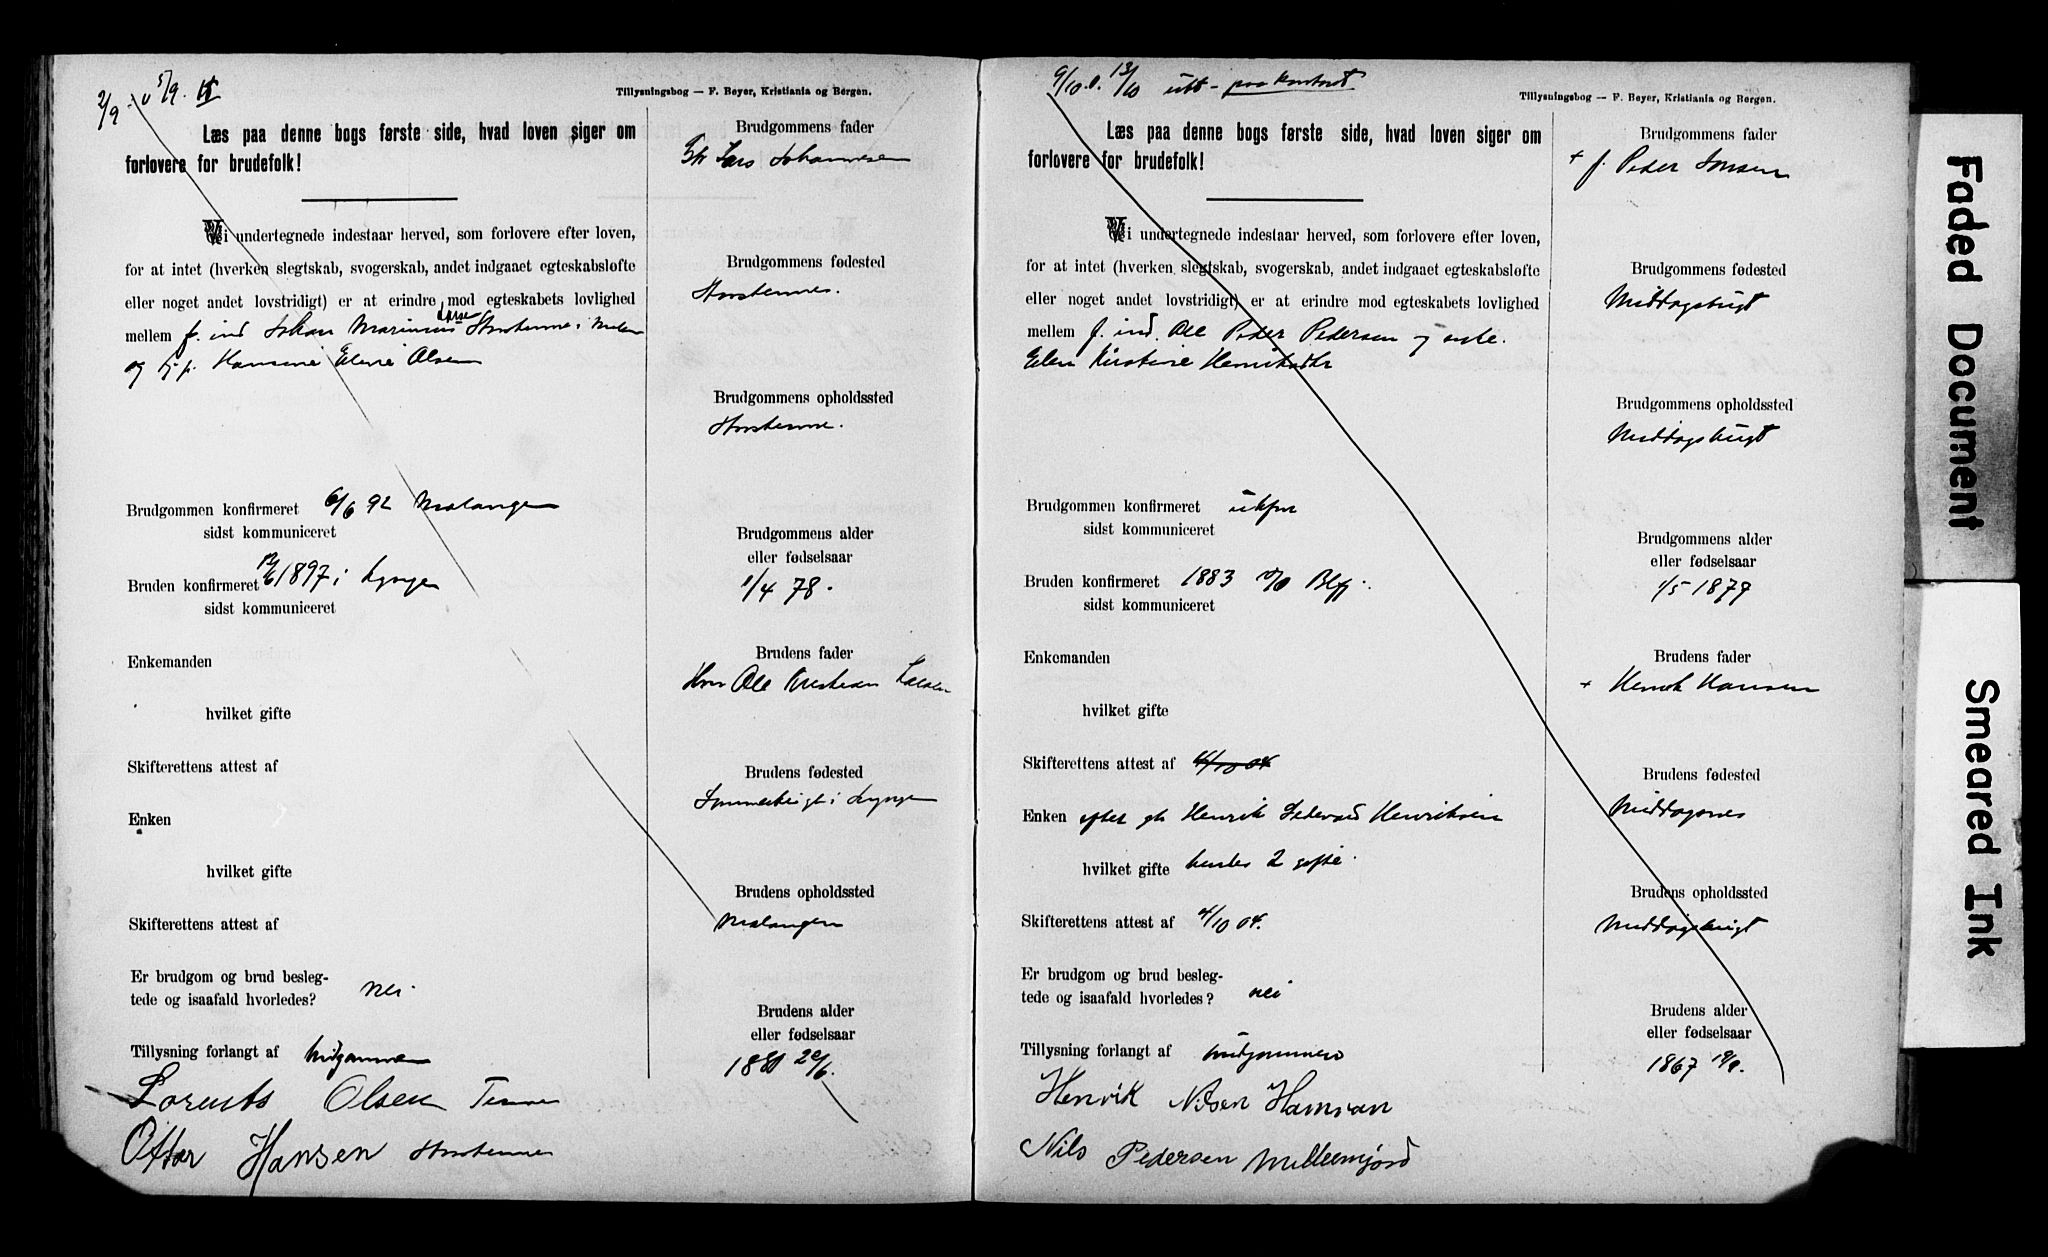 2/9 5/9
Tillysningsbog — F. Beyer, Kristiania og Bergen.
Læs paa denne bogs første side, hvad loven siger om
forlovere for brudefolk!
Vi undertegnede indestaar herved, som forlovere efter loven,
for at intet (hverken slegtskab, svogerskab, andet indgaaet egteskabsløfte
eller noget andet lovstridigt) er at erindre mod egteskabets lovlighed
mellem f. ind Johan Marinius Larsen Storstennes i Malan
og pige Hansine Elene Olsen
Brudgommen konfirmeret 6/6 92 Malangen
sidst kommuniceret
Bruden konfirmeret 1897 i Lyngen
sidst kommuniceret
Enkemanden
hvilket gifte
Skifterettens attest af
Enken
hvilket gifte
Skifterettens attest af
Er brudgom og brud besleg-
tede og isaafald hvorledes? nei.
Tillysning forlangt af brudgommen
Lorents Olsen
Ottar Hansen Storstennes
Brudgommens fader
Lars Johannesen
Brudgommens fødested
Storstennes.
Brudgommens opholdssted
Storstennes.
Brudgommens alder
eller fødselsaar
1/4 78.
Brudens fader
Ole Kristian
Brudens fødested
Sommerbugt i Lyngen
Brudens opholdssted
Malangen
Brudens alder
eller fødselsaar
9/10 13/10 paa kontoret
Tillysningsbog — F. Beyer, Kristiania og Bergen.
Læs paa denne bogs første side, hvad loven siger om
forlovere for brudefolk!
Vi undertegnede indestaar herved, som forlovere efter loven,
for at intet (hverken slegtskab, svogerskab, andet indgaaet egteskabsløfte
eller noget andet lovstridigt) er at erindre mod egteskabets lovlighed
mellem f. ind. Ole Peder Pedersen og enke.
Elen Kirstine Henriksdtr
Brudgommen konfirmeret ukfm
sidst kommuniceret
Bruden konfirmeret 1883 Blfj.
sidst kommuniceret
Enkemanden
hvilket gifte
Skifterettens attest af 4/10 04
Enken efter Henrik Edevard Henriksen
hvilket gifte hendes 2 gifte.
Skifterettens attest af 4/10 04.
Er brudgom og brud besleg-
tede og isaafald hvorledes? nei
Tillysning forlangt af brudgommen
Henrik Nilsen Hamran
Nils Pedersen Mellemjord
Brudgommens fader
+ f. Peder Jonsen
Brudgommens fødested
Middagsbugt
Brudgommens opholdssted
Middagsbugt
Brudgommens alder
eller fødselsaar
1/5 1879
Brudens fader
+ Henrik Hansen
Brudens fødested
Middagsnes
Brudens opholdssted
Middagsbugt
Brudens alder
eller fødselsaar
1867
Faded Document
Smeared Ink